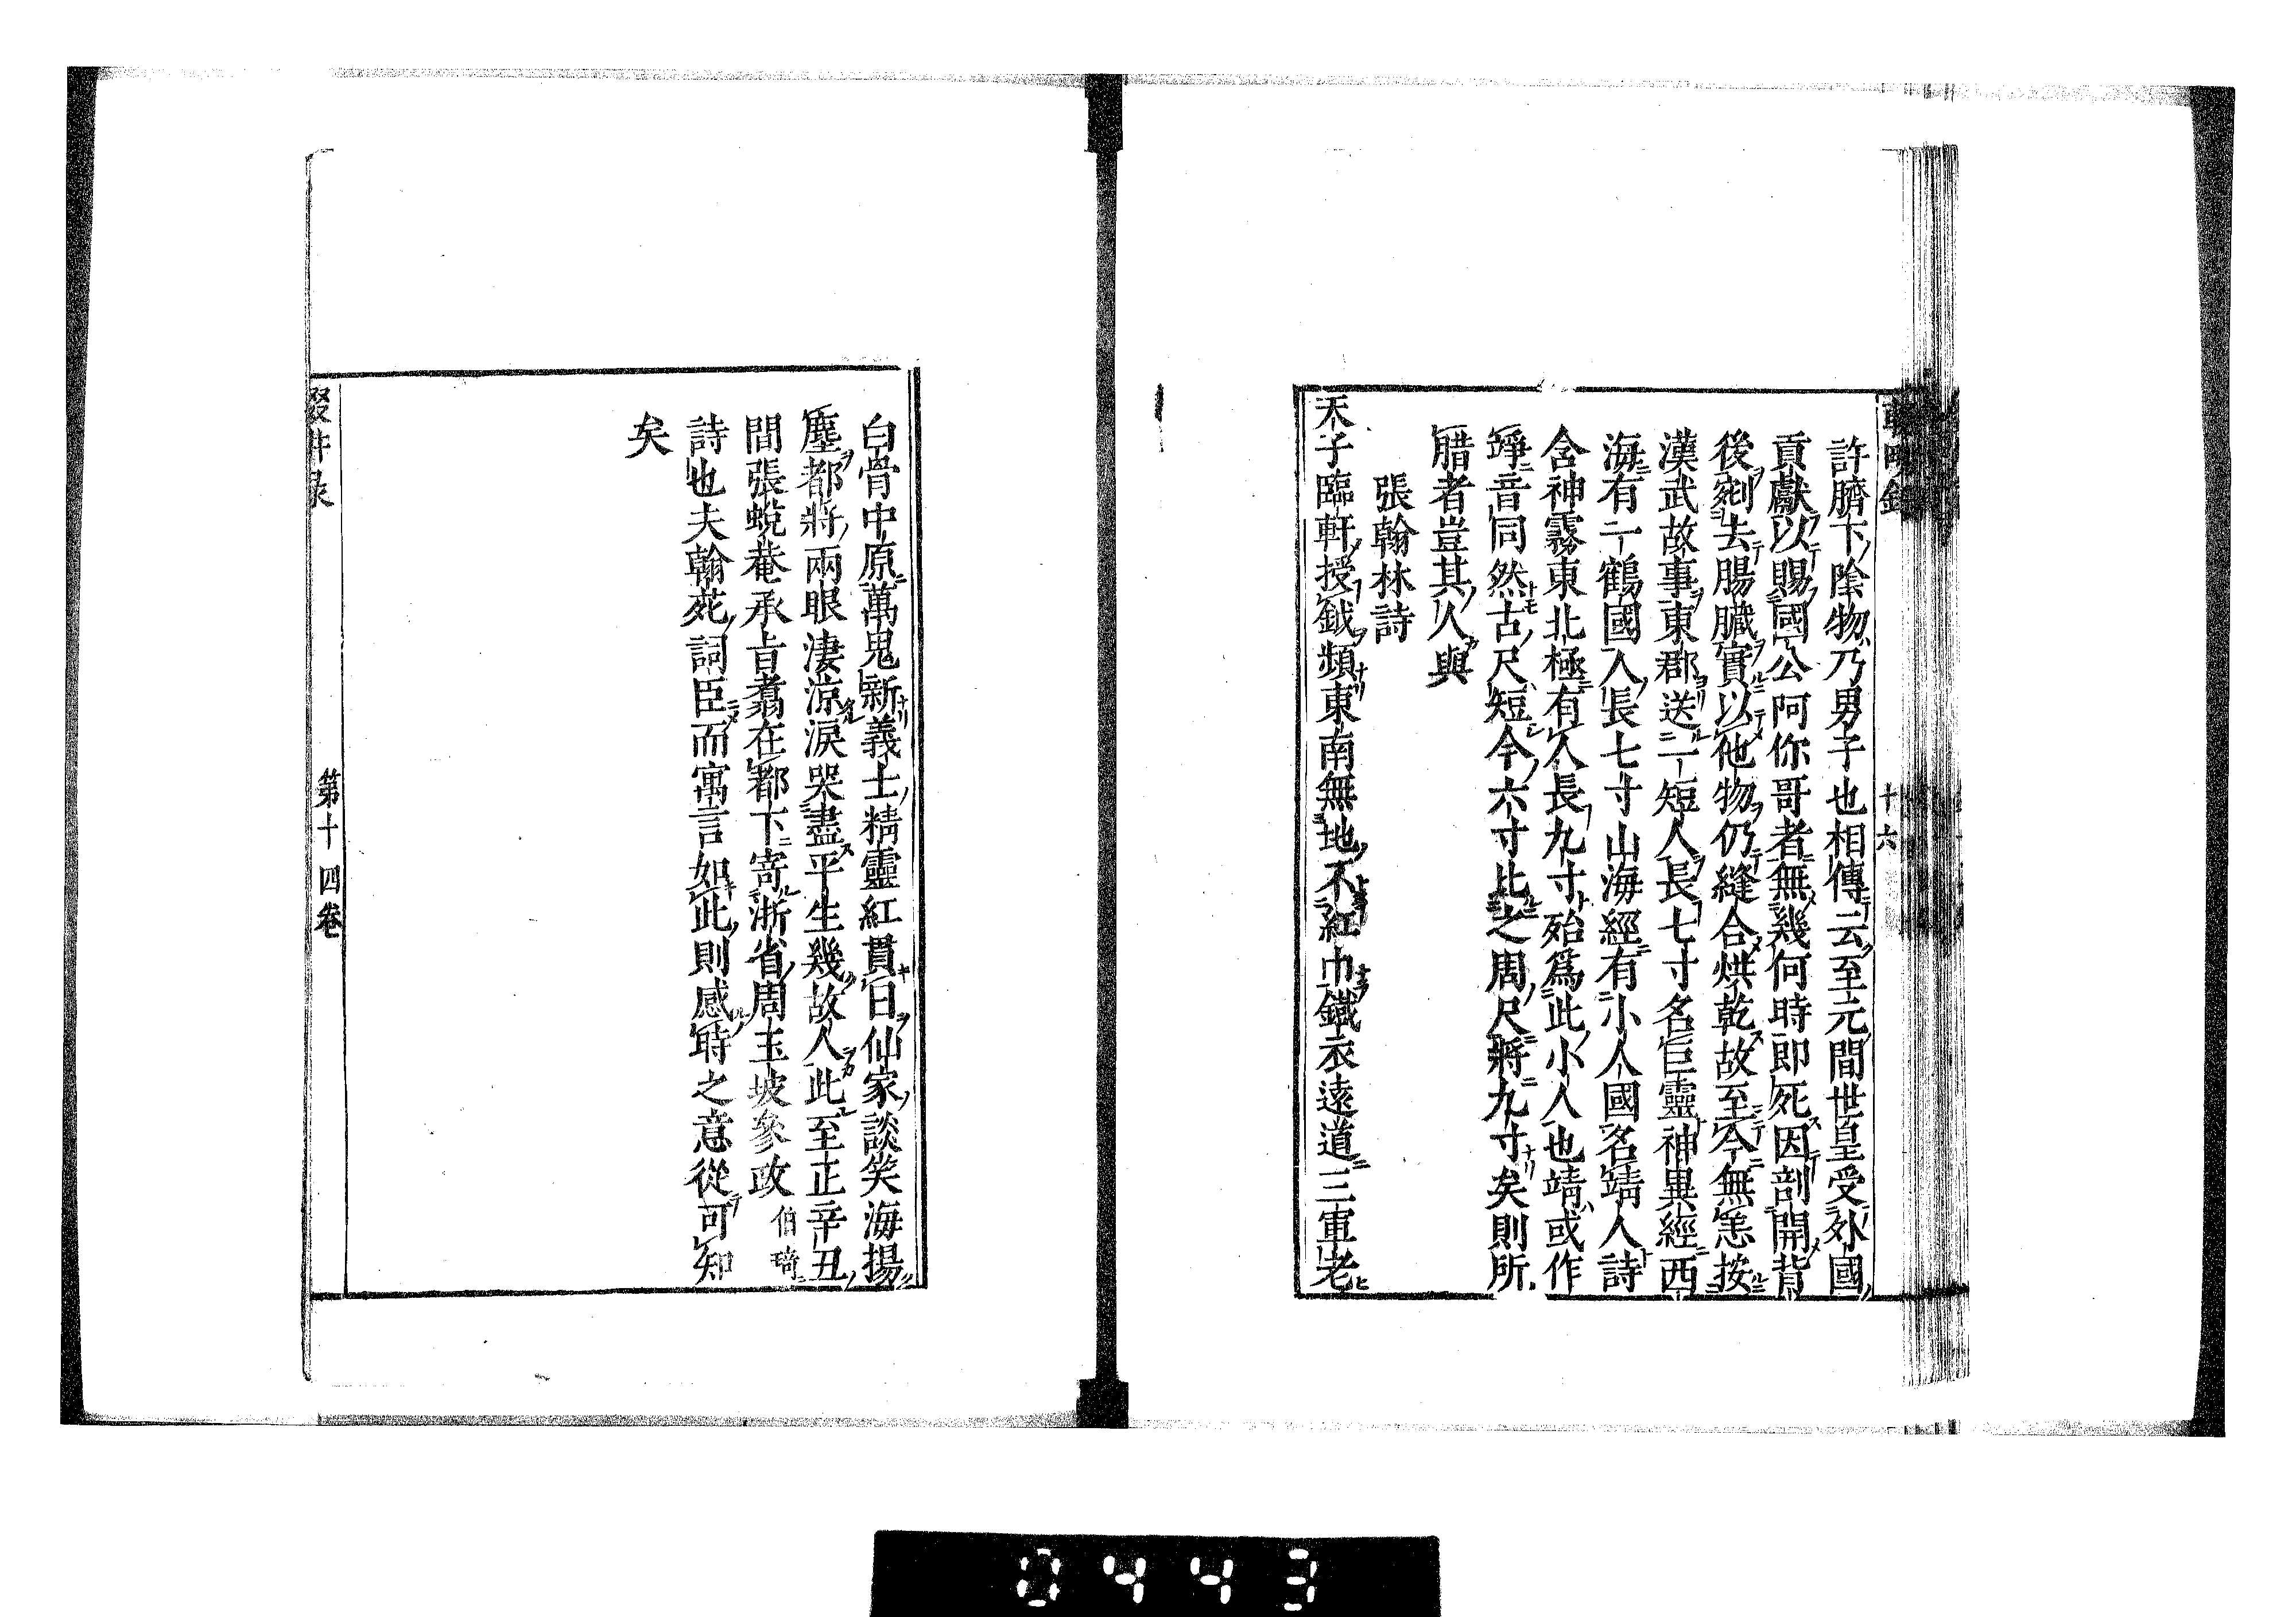 十六
許臍下陰物乃男子也相傳云至元間世皇受外國
貢獻以賜國公阿你哥者無幾何時即死因剖開背
後剜去腸臟實以他物仍縫合烘乾故至今無恙按
漢武故事東郡送一短人長七寸名巨靈神異經西
海有一鶴國人長七寸山海經有小人國名靖人詩
含神霧東北極有人長九寸殆爲此小人也靖或作
竫音同然古尺短今六寸比之周尺將九寸矣則所
腊者豈其人與
張翰林詩
天子臨軒授鉞頻東南無地不紅巾鐵衣遠道三軍老
白骨中原萬鬼新義士精靈紅貫日仙家談笑海揚
塵都將兩眼淒涼淚哭盡平生幾故人此至正辛丑
間張蛻菴承旨翥在都下寄浙省周玉坡參政伯琦
詩也夫翰苑詞臣而寓言如此則感時之意從可知
矣
輟耕录
第十四卷
0443